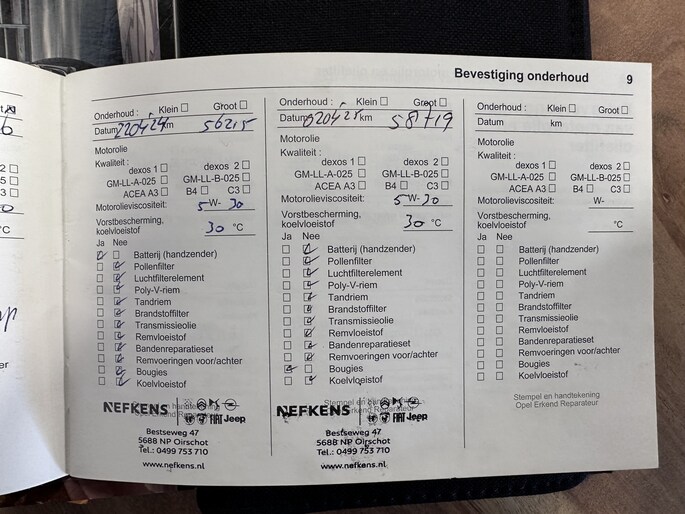 Bevestiging onderhoud 9
Onderhoud : Klein ☐ Groot ☐
Datum 220424 km 56215
Motorolie
Kwaliteit :
dexos 1 ☐ dexos 2 ☐
GM-LL-A-025 ☐ GM-LL-B-025 ☐
ACEA A3 ☐ B4 ☐ C3 ☐
Motorolieviscositeit: 5 W- 30
Vorstbescherming,
koelvloeistof 30 °C
Ja Nee
Batterij (handzender)
Pollenfilter
Luchtfilterelement
Poly-V-riem
Tandriem
Brandstoffilter
Transmissieolie
Remvloeistof
Bandenreparatieset
Remvoeringen voor/achter
Bougies
Koelvloeistof
NEFKENS
FIAT Jeep
Bestseweg 47
5688 NP Oirschot
Tel.: 0499 753 710
www.nefkens.nl
Onderhoud : Klein ☐ Groot ☐
Datum 020425 km 58719
Motorolie
Kwaliteit :
dexos 1 ☐ dexos 2 ☐
GM-LL-A-025 ☐ GM-LL-B-025 ☐
ACEA A3 ☐ B4 ☐ C3 ☐
Motorolieviscositeit: 5 W- 30
Vorstbescherming,
koelvloeistof 30 °C
Ja Nee
Batterij (handzender)
Pollenfilter
Luchtfilterelement
Poly-V-riem
Tandriem
Brandstoffilter
Transmissieolie
Remvloeistof
Bandenreparatieset
Remvoeringen voor/achter
Bougies
Koelvloeistof
NEFKENS
FIAT Jeep
Bestseweg 47
5688 NP Oirschot
Tel.: 0499 753 710
www.nefkens.nl
Onderhoud : Klein ☐ Groot ☐
Datum km
Motorolie
Kwaliteit :
dexos 1 ☐ dexos 2 ☐
GM-LL-A-025 ☐ GM-LL-B-025 ☐
ACEA A3 ☐ B4 ☐ C3 ☐
Motorolieviscositeit: W-
Vorstbescherming,
koelvloeistof °C
Ja Nee
Batterij (handzender)
Pollenfilter
Luchtfilterelement
Poly-V-riem
Tandriem
Brandstoffilter
Transmissieolie
Remvloeistof
Bandenreparatieset
Remvoeringen voor/achter
Bougies
Koelvloeistof
Stempel en handtekening
Opel Erkend Reparateur